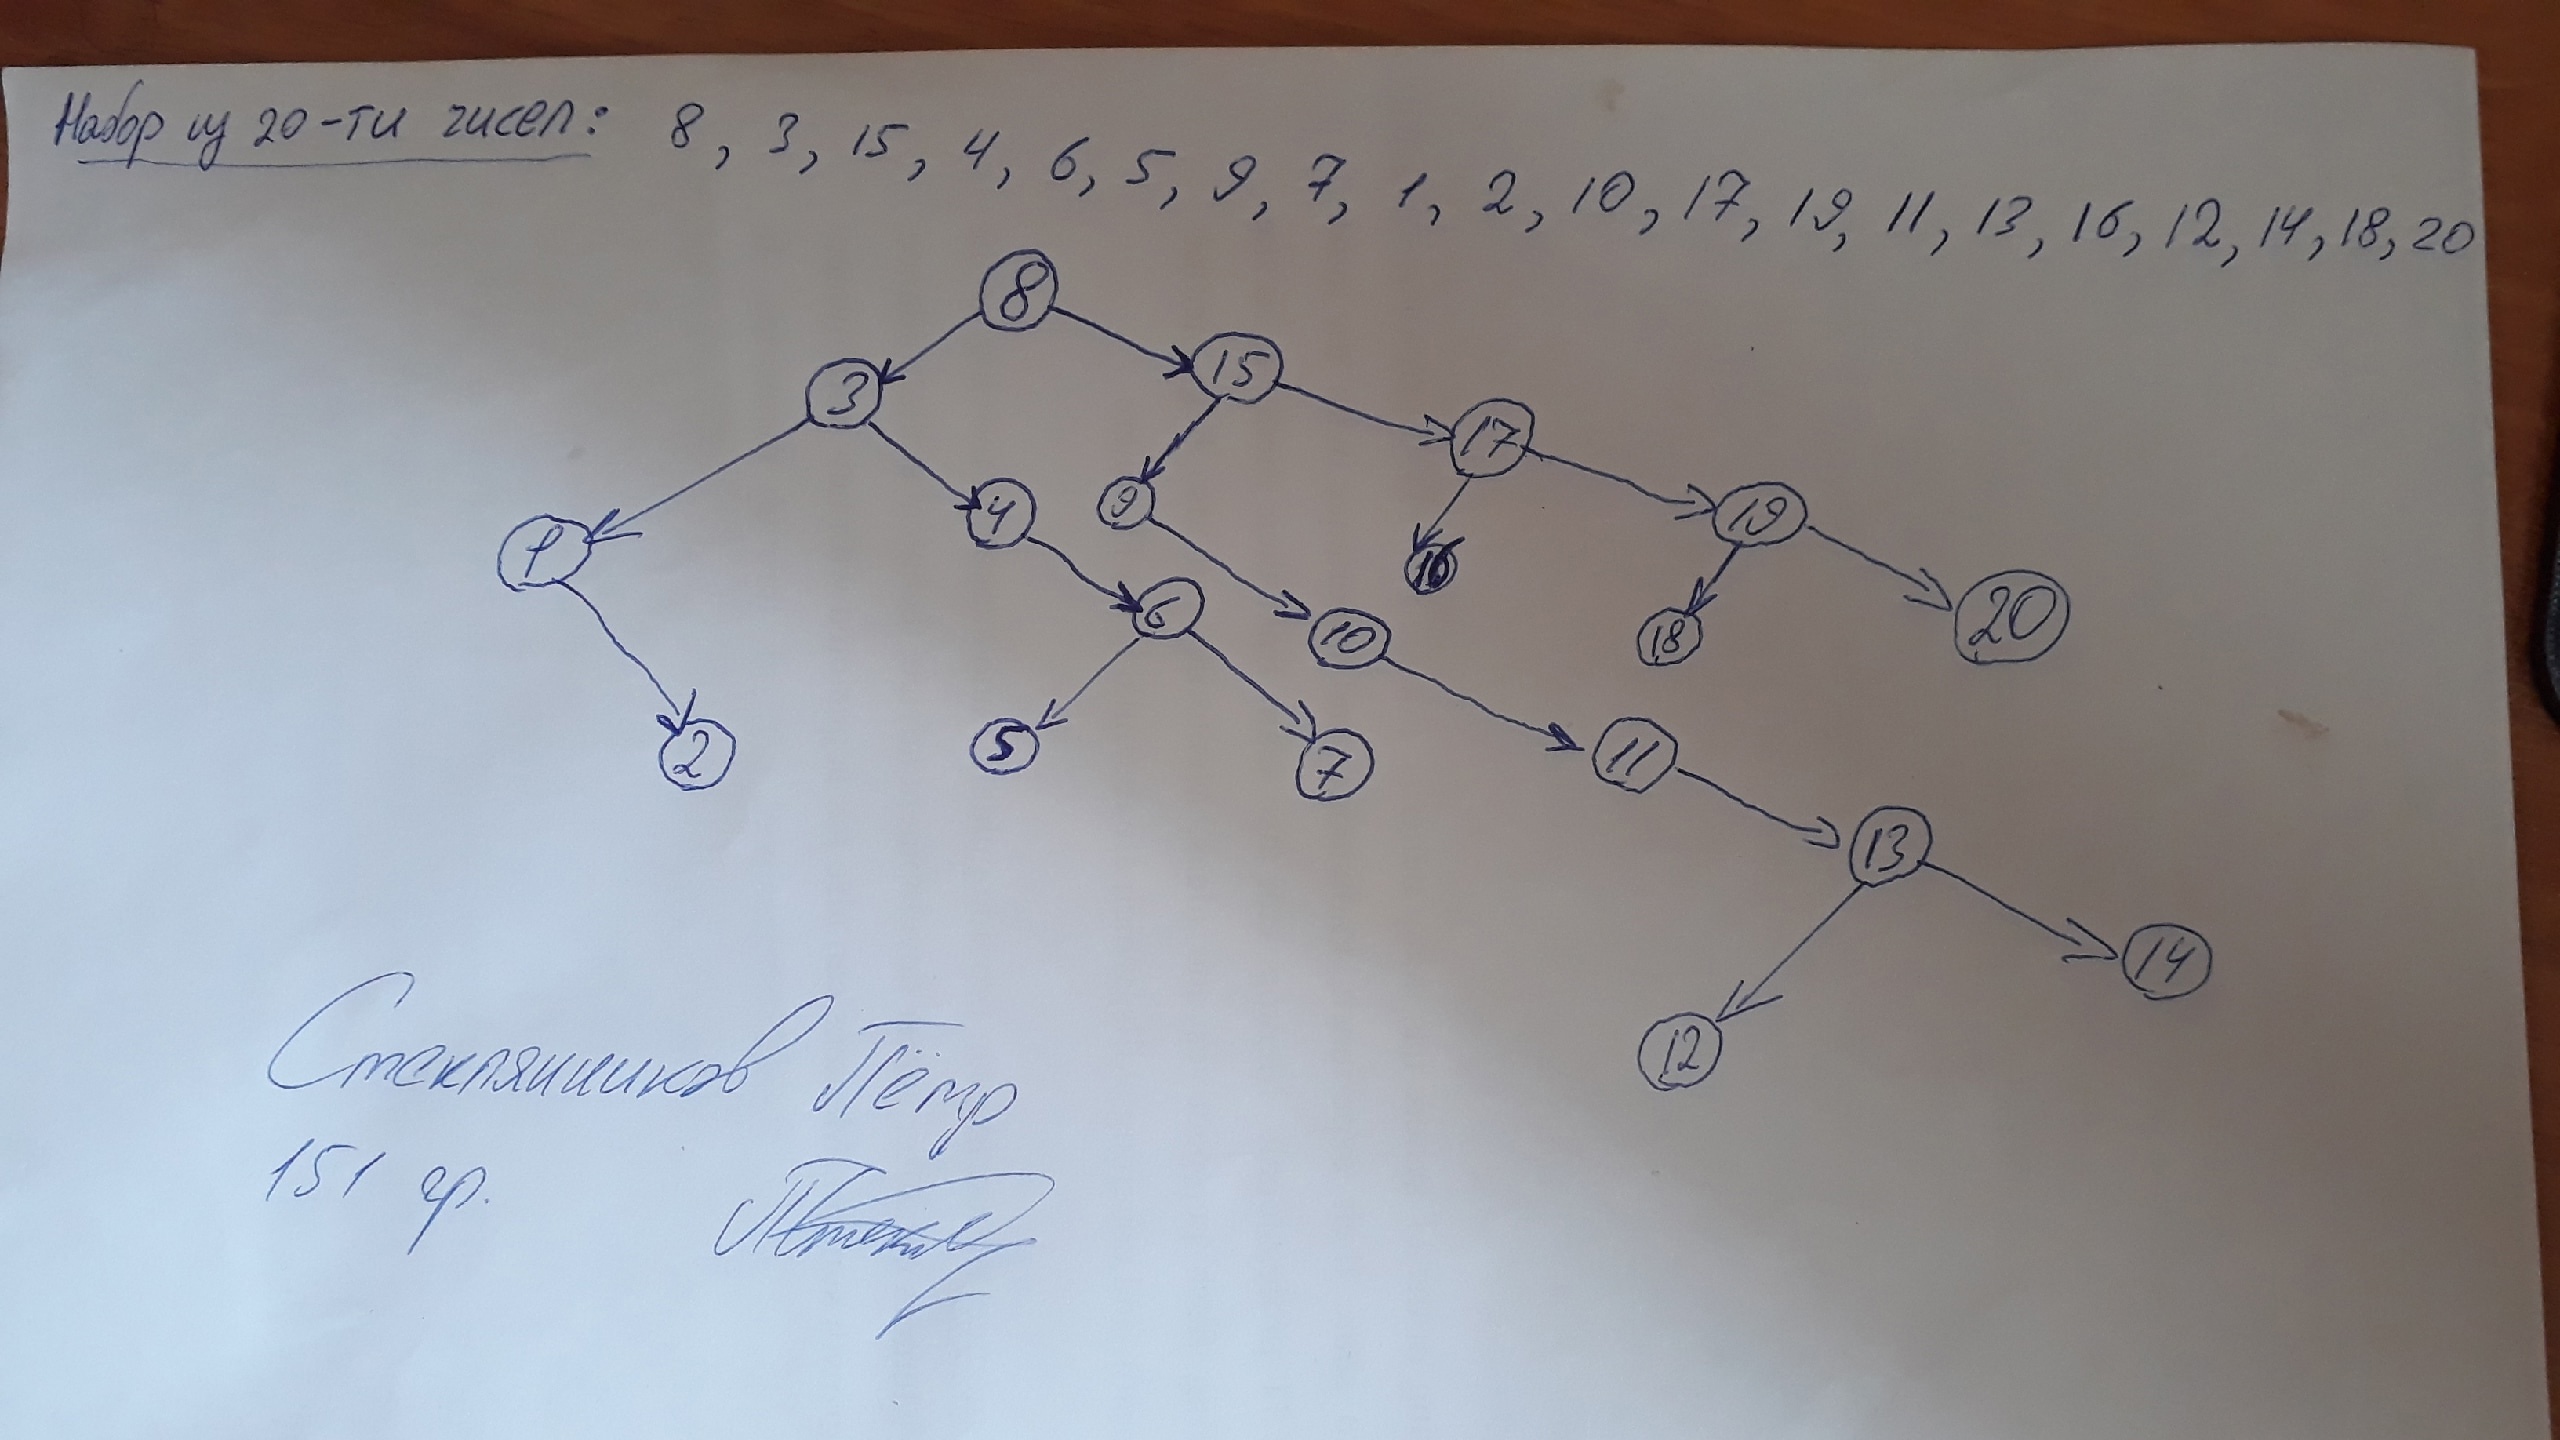 Набор из 20-ти чисел: 8, 3, 15, 4, 6, 5, 9, 7, 1, 2, 10, 17, 19, 11, 13, 16, 12, 14, 18, 20
8
3 15
17
1 4 9 19
16
6 10 18 20
2 5 7 11
13
14
12
Стеклянников Пётр
151 гр.